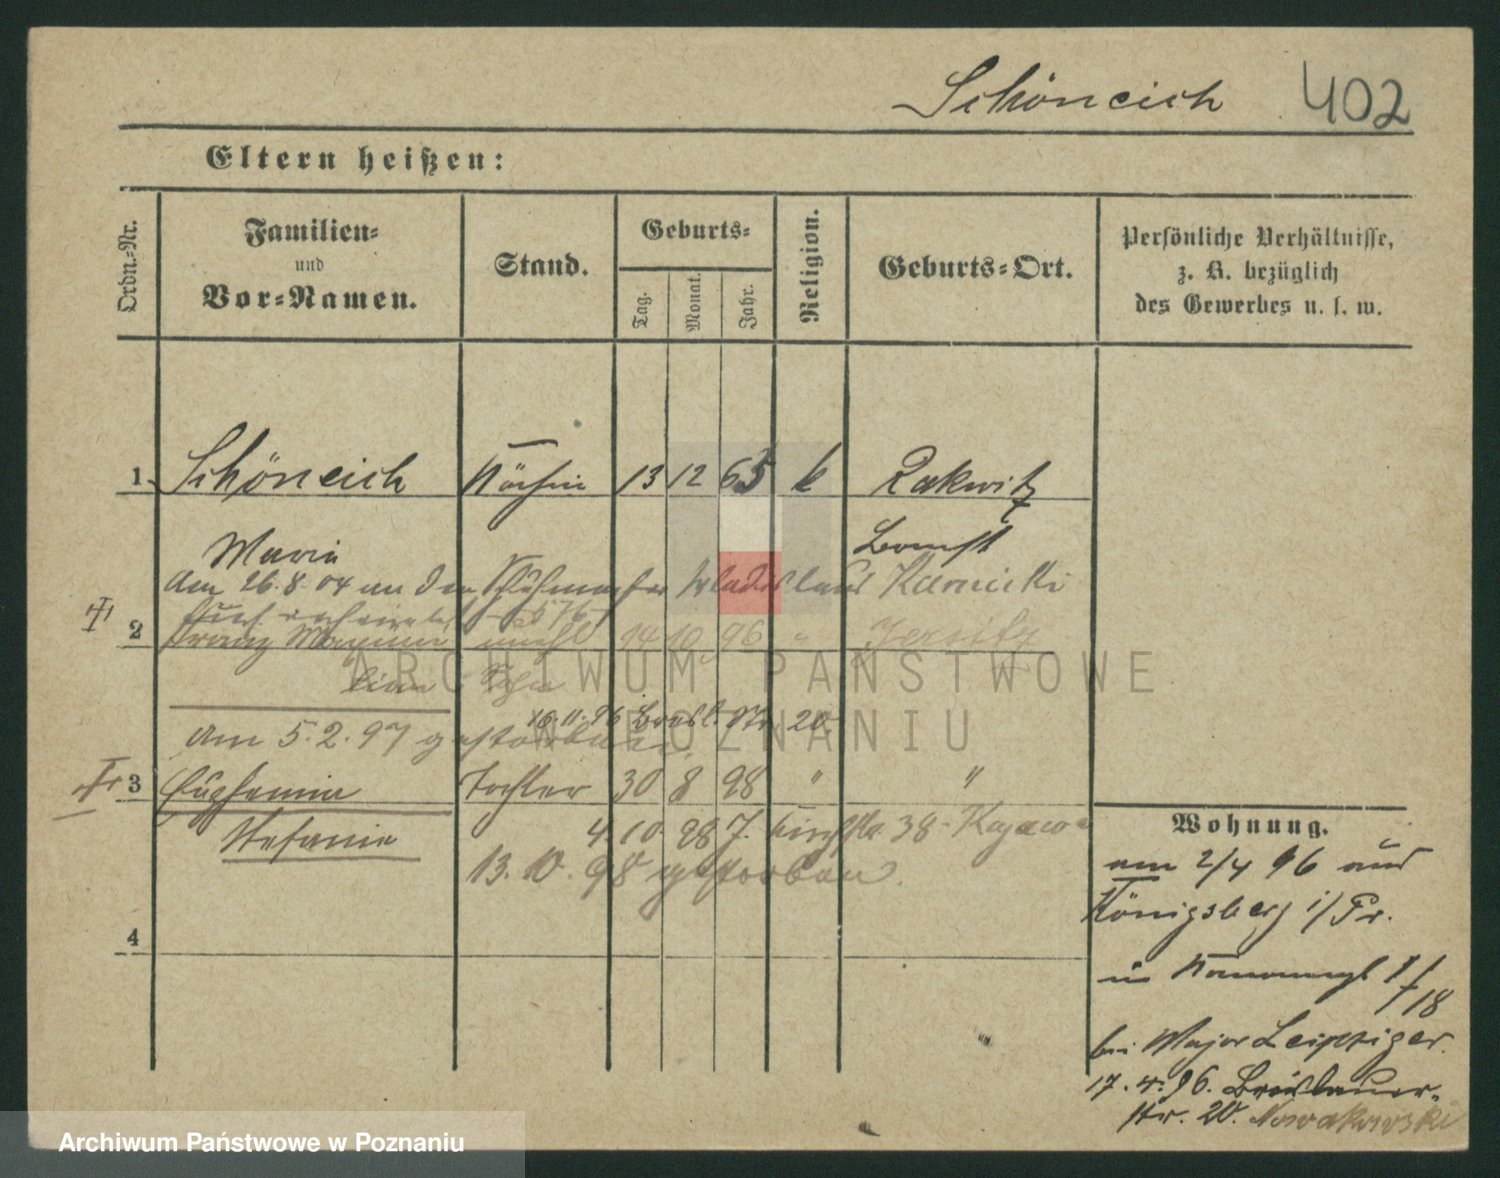 Schöneich 402
Eltern heißen:
Ordn.-Nr.
Familien-
und
Vor-Namen.
Stand.
Geburts-
Tag.
Monat.
Jahr.
Religion.
Geburts-Ort.
Persönliche Verhältnisse,
z. B. bezüglich
des Gewerbes u. s. w.
1 Schöneich Köchin 13 12 65 k Rakwitz
Marie Bomst
Am 26.8.04 an den Schuhmacher Wladislaus Karnicki
hier verheiratet
2 Franz Maximi unehl 14 10 96 " Jersitz
lian Sohn
16.11.96 Bresl. Str 20.
Am 5.2.97 gestorben.
3 Eugenia Tochter 30 8 98 " "
Stefanie 4. 10. 98 38
13. 10. 98 gestorben.
4
Wohnung.
am 2/4 96 aus
Königsberg i/Pr.
in
18
bei Major Leipziger.
17.4.96. Breslauer-
str. 20. Nowakowski
ARCHIWUM PAŃSTWOWE
W POZNANIU
Archiwum Państwowe w Poznaniu